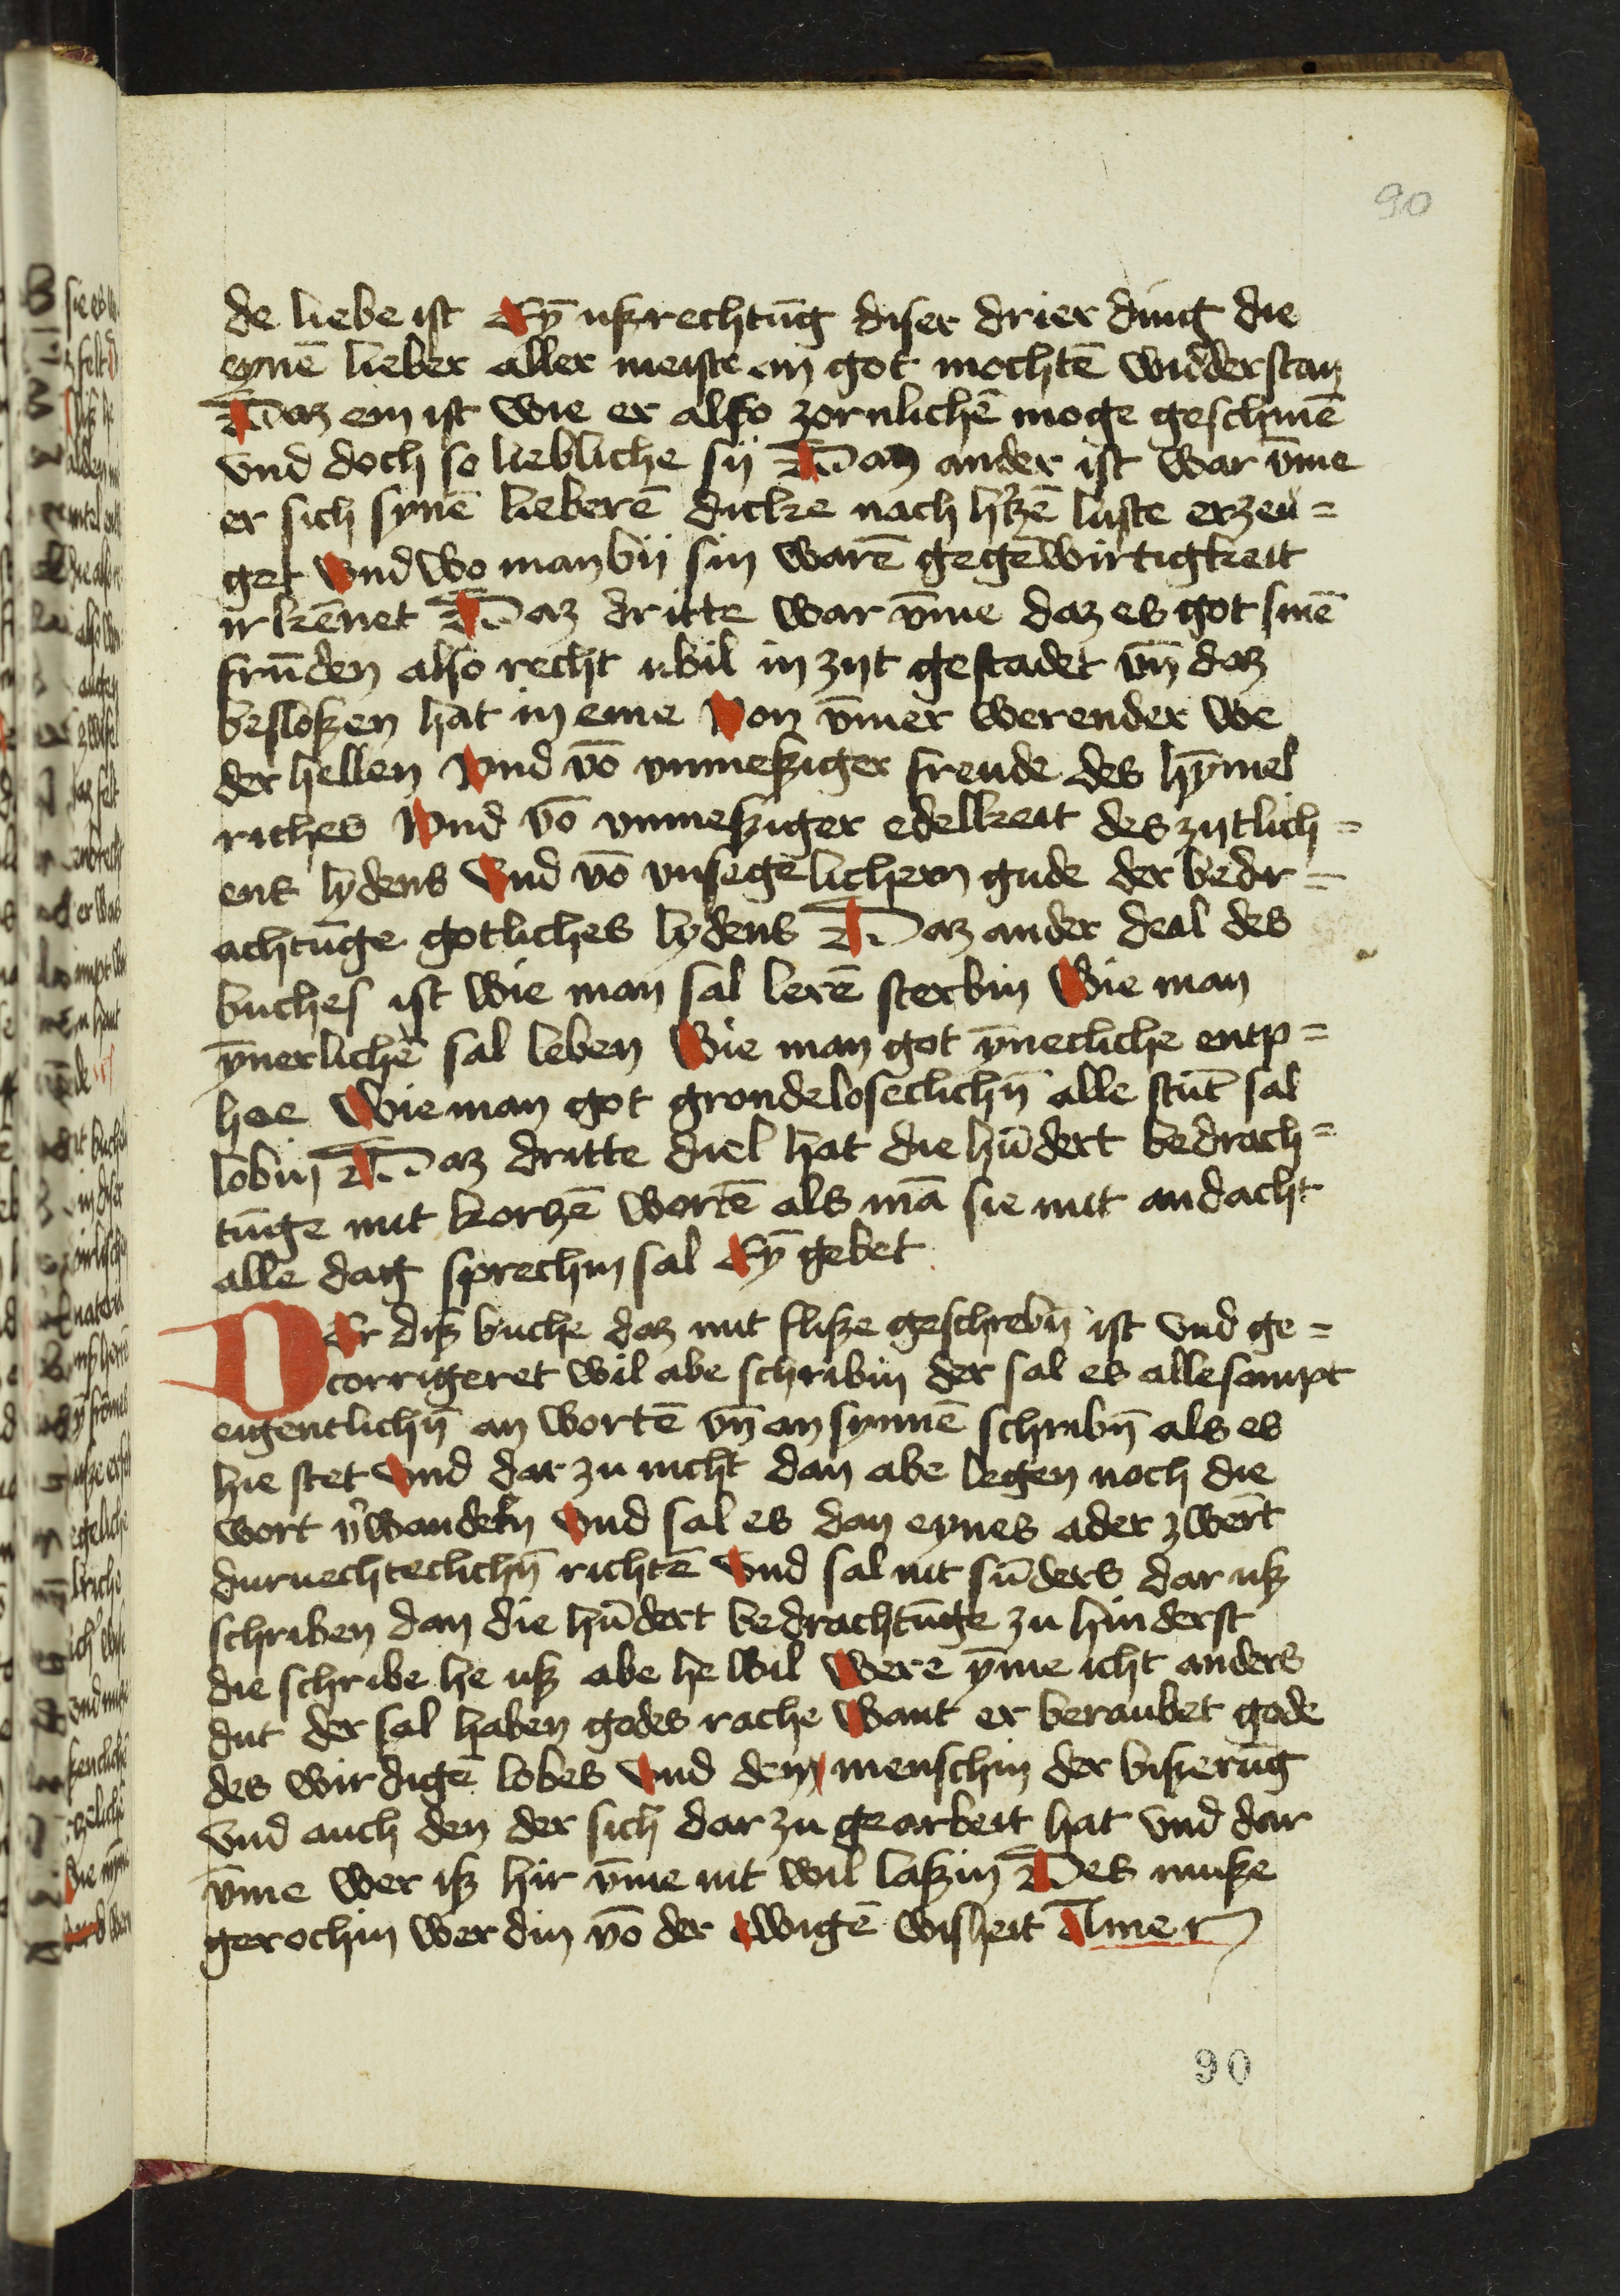 90
de liebe ist Eyn̄ ußrechtūg diser drier ding die
eynē lieber aller meiste an got mochtē wiḋderstan
Daz ein ist wie er also zornlichē moge geschinē
vnd doch so liebliche sij Daz ander ist war v̄me
er sich synē lieberē dicke nach h̓tzē luste erzeu=
get vnd wo man bij sin warē gegēwirtigkeit
irkēnet Daz dritte war v̄me daz es got sinē
frūden also recht vbil in zijt gestadet vn̄ daz
besloßen hat in eme Von v̄mer werender we
der hellen Vnd vō vnmeßiger freude des hȳmel
riches Vnd vō vnmeßiger edelkeit des zijtlich=
ens lydens Vnd vō vnsegēlichem gude der bedr=
achtūge gotliches lydens Daz ander deal des
buches ist wie man sal lerē sterbin Wie man
ȳnerlichē sal leben Wie man got ȳnecliche entp=
hee Wie man got grondeloseclichn̄ alle stūt sal
lobin Daz dritte diel hat die hūdert bedrach=
tūge mit korczē wortē als mā sie mit andacht
alle dag sprechin sal Eyn̄ gebet
DEr diß buche daz mit fliße geschrebn̄ ist vnd ge=
corrigeret wil abe schribin der sal es allesampt
eigentlichn̄ an wortē vn̄ an synnē schribn̄ als es
hie stet Vnd dar zu nicht dan abe legen noch die
wort v̓wandeln Vnd sal es dan eynes ader zwert
durnechteclichn̄ richtē Vnd sal nit sūders dar uß
schriben dan die hūdert bedrachtūge zu hinderst
die schribe he uß abe he wil Were ȳme icht anders
dut der sal haben godes rache Want er beraubet gode
des wirdigē lobes Vnd dem menschin der bißerūg
vnd auch den der sich dar zu gearbeit hat vnd dar
v̄me wer iß hir v̄me nit wil laßin Des muße
gerochin werdin vō der ewigē wisheit Amen
90